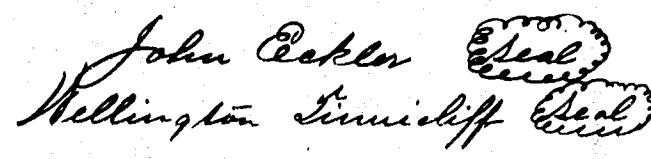 John Eckler Seal
Wellington Tinnicliff Seal